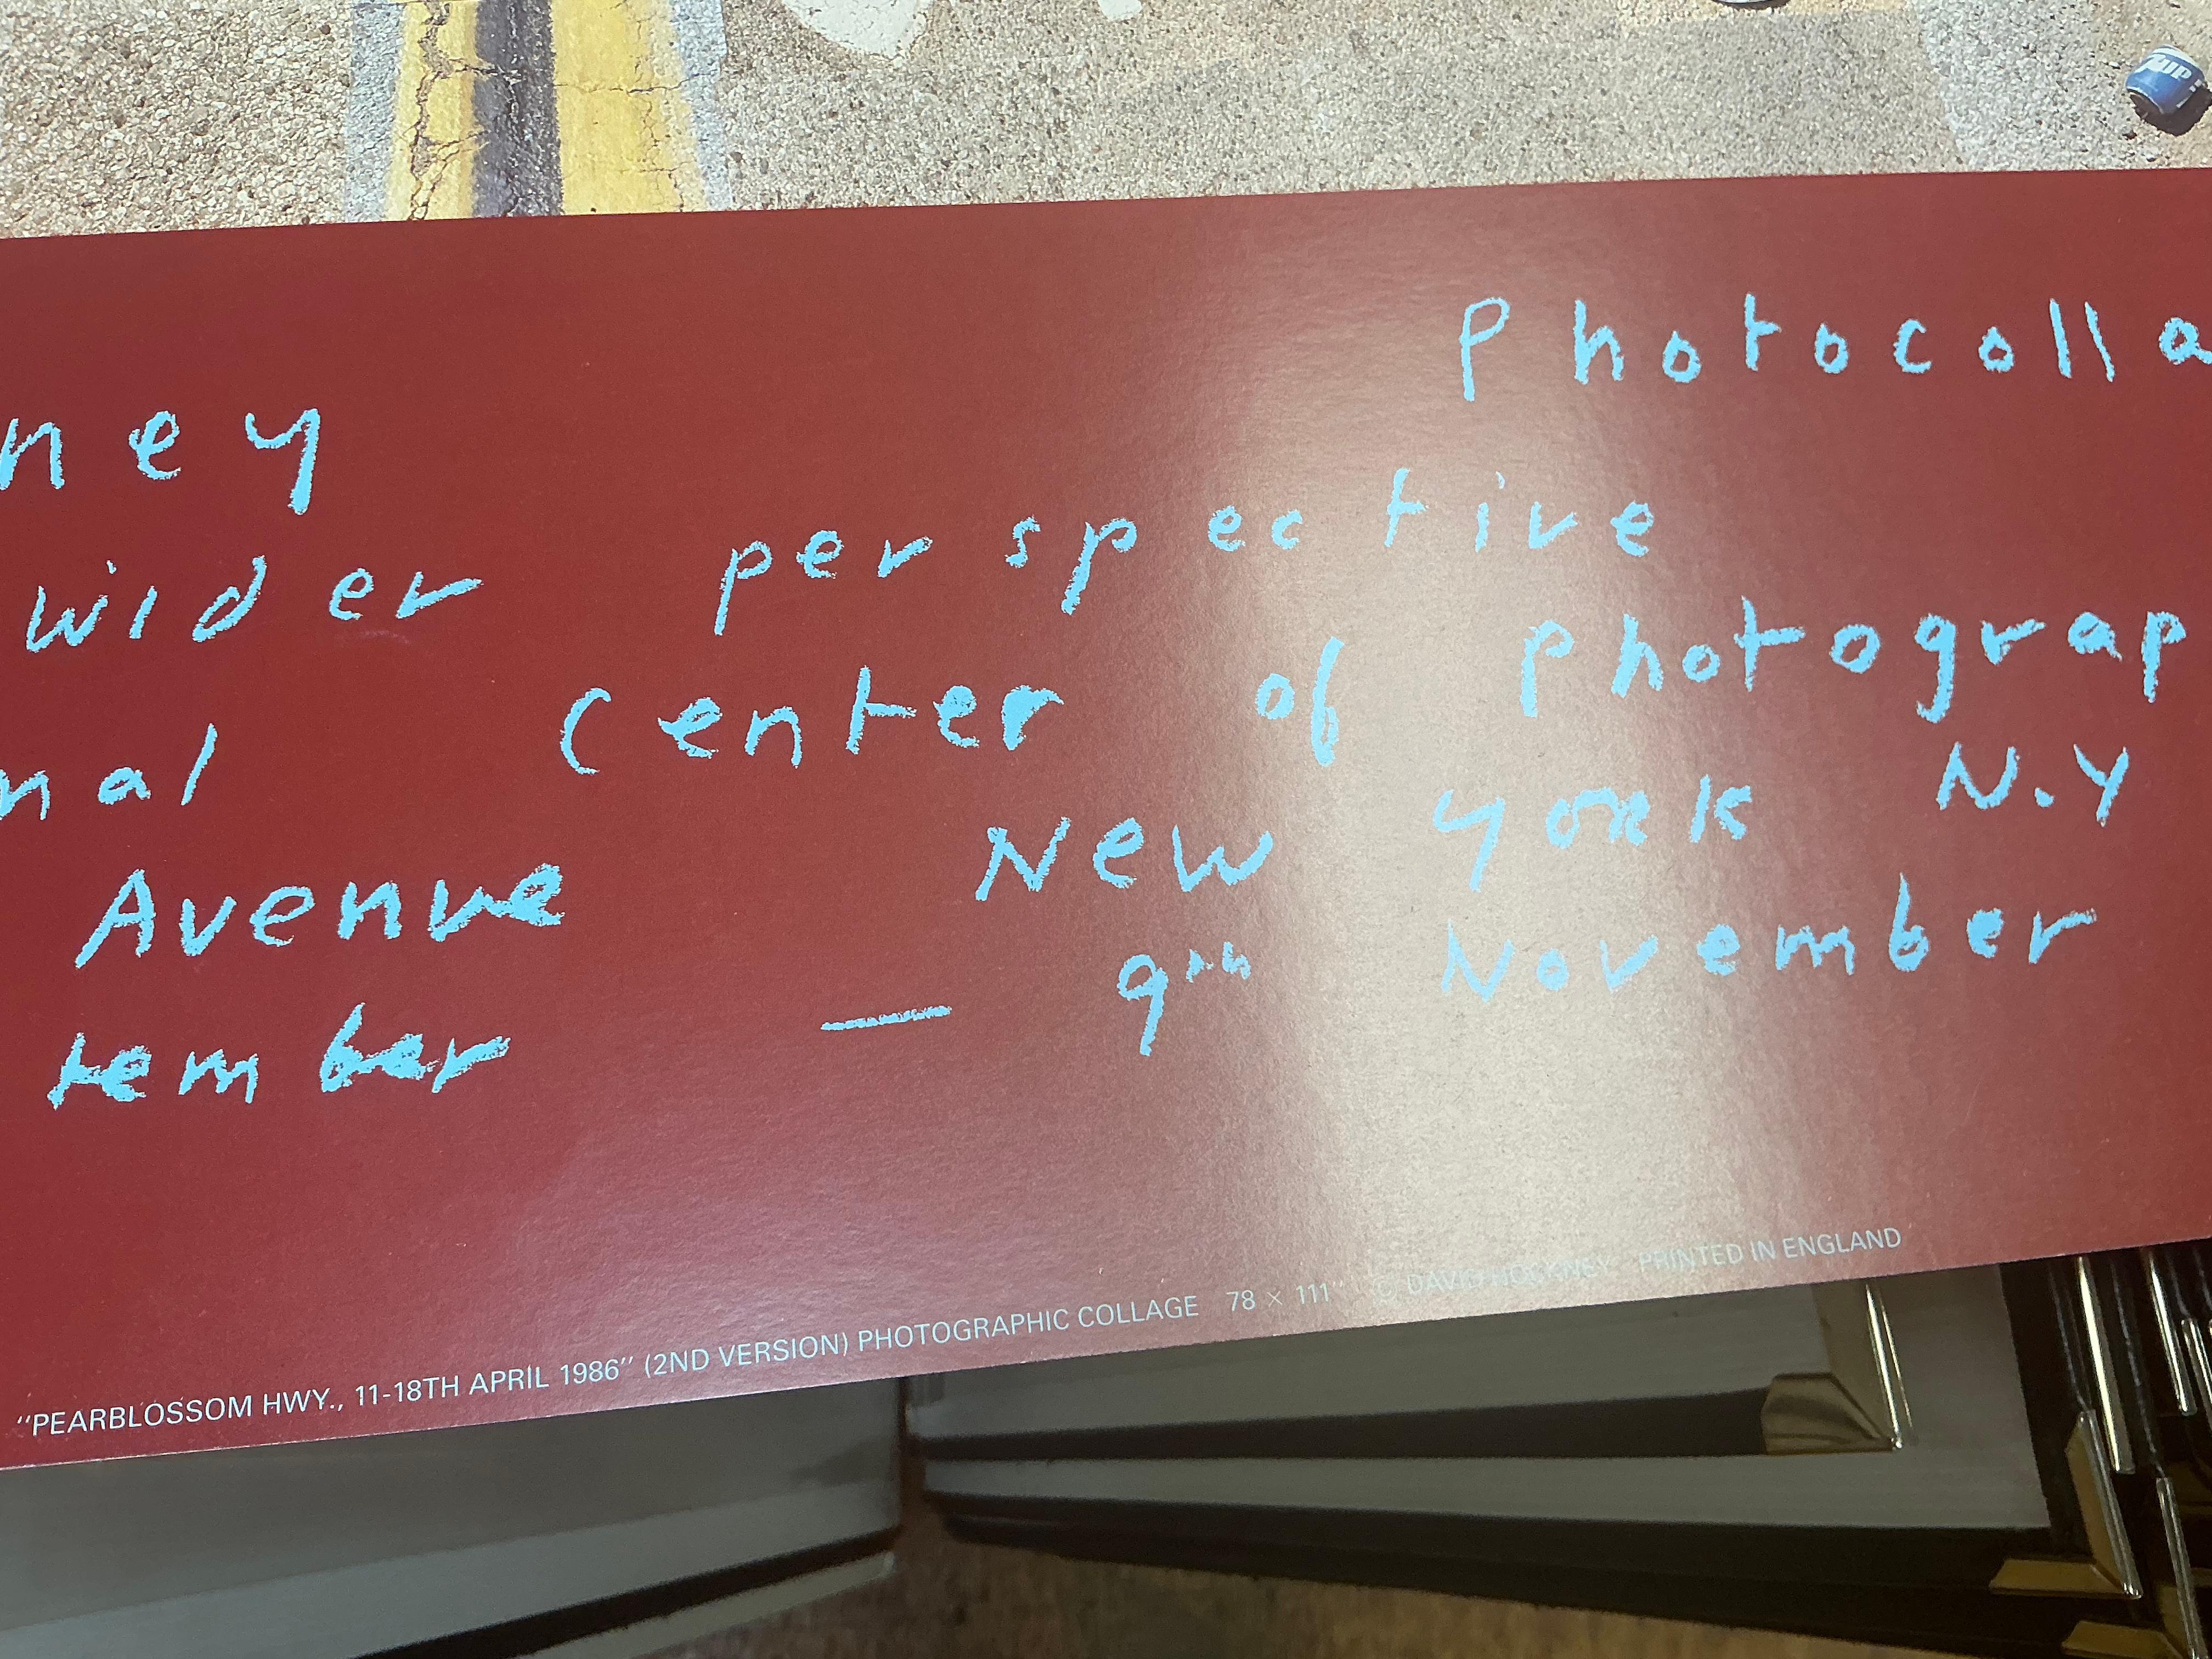 Photocolla
ney
wider perspective
nal Center of Photograp
Avenue New York N.Y
tember — 9th November
"PEARBLOSSOM HWY., 11-18TH APRIL 1986" (2ND VERSION) PHOTOGRAPHIC COLLAGE 78 × 111" © DAVID HOCKNEY PRINTED IN ENGLAND